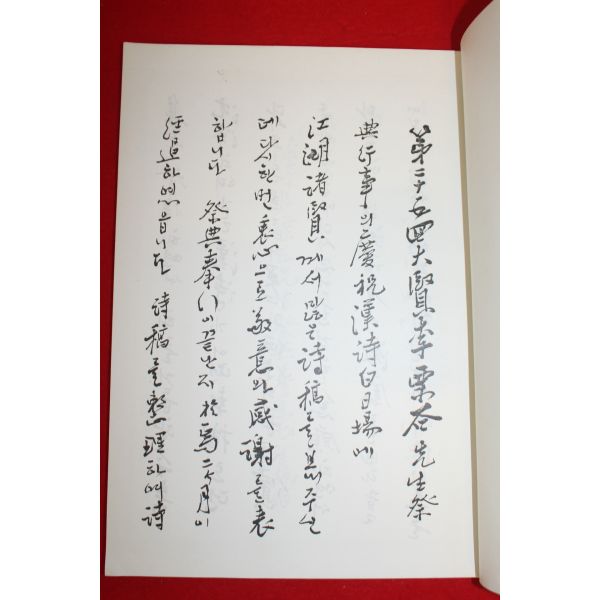 第二十五回大賢李栗谷先生祭
典行事의 慶祝漢詩白日場에
江湖諸賢께서 많은 詩稿를 보내주신
데 다시한번 衷心으로 敬意와 感謝를 表
합니다 祭典奉行이 끝난지 於焉 二個月이
経過하였읍니다 詩稿를 整理하여 詩